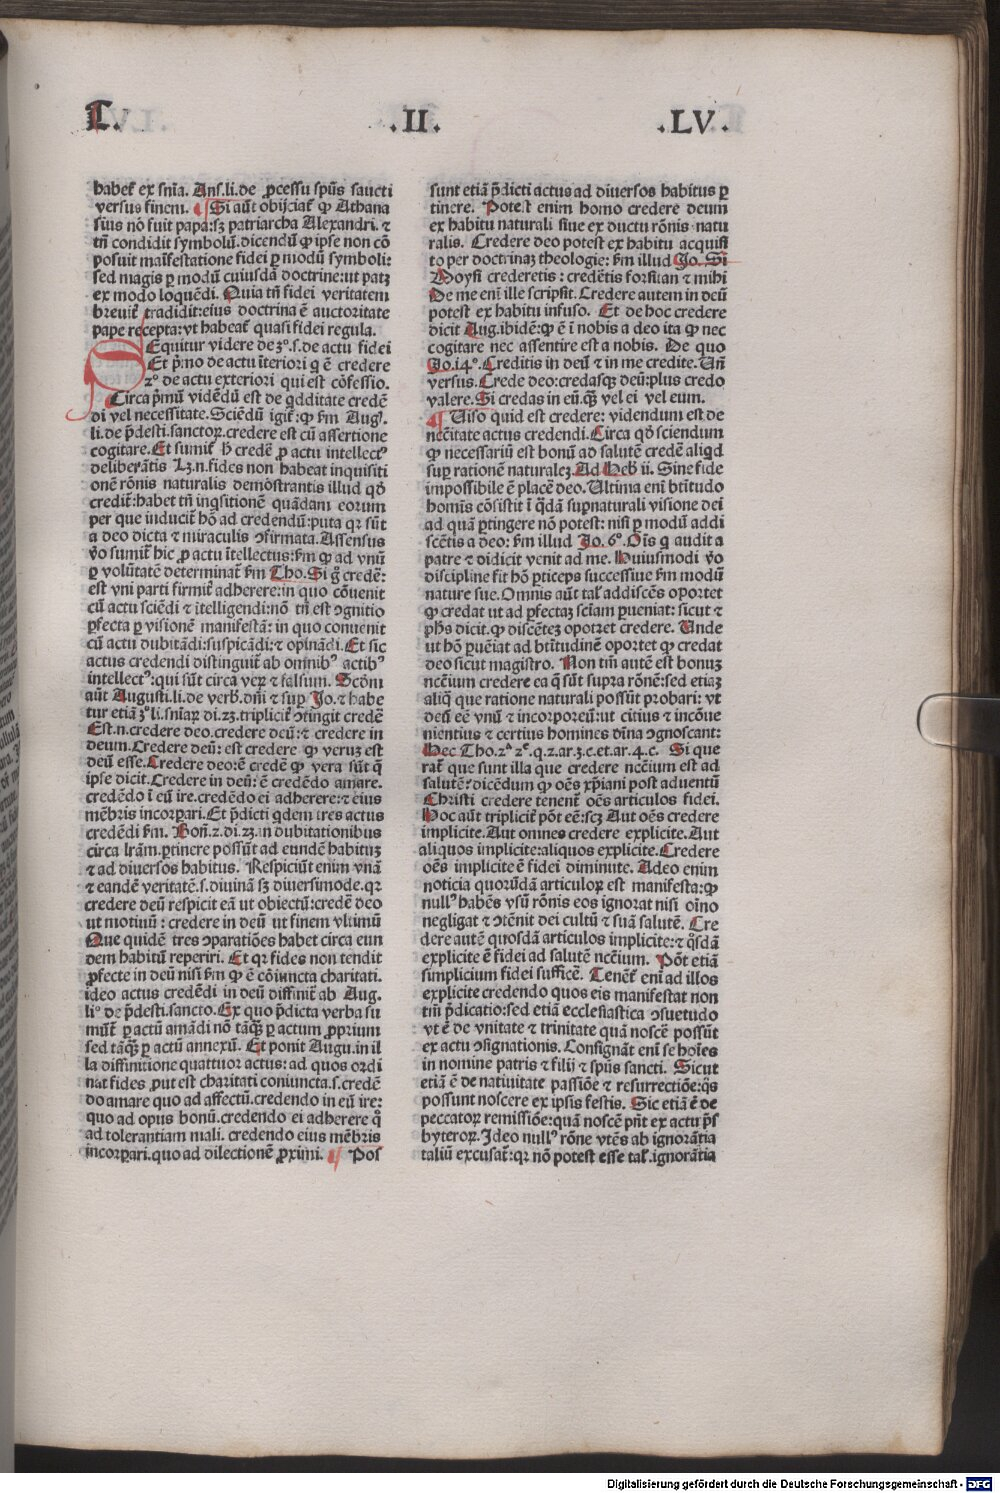 T. .II. .LV.
habet̃ ex sñia. Ans.li.de ꝓcessu spũs sancti
versus finem. ¶ Si aũt obijciat̃ ꝙ Athana
sius nõ fuit papa:sꝫ patriarcha Alexandri. ⁊
tñ condidit symbolũ.dicendũ ꝙ ipse non cõ
posuit maĩfestatione fidei ꝑ modũ symboli:
sed magis ꝑ modũ cuiusdã doctrine:ut patꝫ
ex modo loquẽdi. Quia tñ fidei veritatem
breuit̃ tradidit:eius doctrina ẽ auctoritate
pape recepta:vt habeat̃ quasi fidei regula.
SEquitur videre de 3°.s.de actu fidei
Et p̃mo de actu ĩteriori q ẽ credere
2° de actu exteriori qui est cõfessio.
Circa p̃mũ vidẽdũ est de qdditate credẽ
di vel necessitate.Sciẽdũ igit̃:ꝙ ẜm Augꝰ.
li.de p̃desti.sanctoꝝ.credere est cũ assertione
cogitare.Et sumit̃ h̃ credẽ ꝓ actu intellectꝰ
deliberãtis Lꝫ.n.fides non habeat inquisiti
onẽ rõnis naturalis demõstrantis illud qð
credit̃:habet tñ inqsitionẽ quãdam eorum
per que inducit̃ hõ ad credendũ:puta qꝛ sũt
a deo dicta ⁊ miraculis ꝯfirmata.Assensus
ṽo sumit̃ hic ꝓ actu ĩtellectus:ẜm ꝙ ad vnũ
ꝑ volũtatẽ determinat̃ ẜm Tho.Si g̊ credẽ:
est vni parti firmit̃ adherere:in quo cõuenit
cũ actu sciẽdi ⁊ ĩtelligendi:nõ tñ est ꝯgnitio
ꝑfecta ꝑ visionẽ manifestã: in quo conuenit
cũ actu dubitãdi:suspicãdi: ⁊ opinãdi.Et sic
actus credendi distinguit̃ ab omnibꝰ actibꝰ
intellectꝰ:qui sũt circa veꝝ ⁊ falsum. Scõni
aũt Augusti.li.de verb̃.dñi ⁊ suꝑ Jo.⁊ habe
tur etiã 3°.li.sñiaꝝ di.23.triplicit̃ ꝯtingit credẽ
Est.n.credere deo.credere deũ: ⁊ credere in
deum.Credere deũ: est credere ꝙ veruꝫ est
deũ esse.Credere deo:ẽ credẽ ꝙ vera sũt q̃
ipse dicit.Credere in deũ: ẽ credẽdo amare.
credẽdo ĩ eũ ire.credẽdo ei adherere:⁊ eius
mẽbris incorꝑari.Et p̃dicti qdem tres actus
credẽdi ẜm. Boñ.2.di.23.in dubitationibus
circa lrãm.ꝑtinere possũt ad eundẽ habituꝫ
⁊ ad diuersos habitus. Respiciũt enim vnã
⁊ eandẽ veritatẽ.s.diuinã sꝫ diuersimode.qꝛ
credere deũ respicit eã ut obiectũ:credẽ deo
ut motiuũ : credere in deũ ut finem vltimũ
Que quidẽ tres ꝯparatiões habet circa eun
dem habitũ reperiri. Et qꝛ fides non tendit
ꝑfecte in deũ nisi ẜm ꝙ ẽ cõiuncta charitati.
ideo actus credẽdi in deũ diffinit̃ ab Aug.
li° de p̃desti.sancto.Ex quo p̃dicta verba su
mũt̃ ꝑ actũ amãdi nõ tãqꝫ ꝑ actum ꝓprium
sed tãqꝫ ꝑ actũ annexũ. Et ponit Augu.in il
la diffinitione quattuor actus:ad quos ordi
nat fides ꝓut est charitati coniuncta.s.credẽ
do amare quo ad affectũ.credendo in eũ ire:
quo ad opus bonũ.credendo ei adherere q̊
ad tolerantiam mali. credendo eius mẽbris
incorꝑari.quo ad dilectionẽ ꝓximi. ¶ Pos
sunt etiã p̃dicti actus ad diuersos habitus ꝑ
tinere. Potest enim homo credere deum
ex habitu naturali siue ex ductu rõnis natu
ralis. Credere deo potest ex habitu acquisi
to per doctrinaꝫ theologie: ẜm illud Jo. Si
Moysi crederetis : credẽtis forsitan ⁊ mihi
De me eni ille scripsit.Credere autem in deũ
potest ex habitu infuso. Et de hoc credere
dicit Aug.ibidẽ:ꝙ ẽ ĩ nobis a deo ita ꝙ nec
cogitare nec assentire est a nobis. De quo
Jo.14°.Creditis in deũ ⁊ in me credite.Uñ
versus.Crede deo:credasqꝫ deũ:plus credo
valere.Si credas in eũ.qꝫ vel ei vel eum.
¶ Uiso quid est credere: videndum est de
necẽitate actus credendi.Circa qð sciendum
ꝙ necessariũ est bonũ ad salutẽ credẽ aliqd
suꝑ rationẽ naturaleꝫ.Ad Heb̃ ii. Sine fide
impossibile ẽ placẽ deo.Ultima eni btĩtudo
homĩs cõsistit ĩ qdã suꝑnaturali visione dei
ad quã ꝑtingere nõ potest: nisi ꝑ modũ addi
scẽtis a deo: ẜm illud Jo.6°.Oĩs q audit a
patre ⁊ didicit venit ad me. Huiusmodi ṽo
discipline fit hõ ꝑticeps successiue ẜm modũ
nature sue.Omnis aũt tal̃ addiscẽs oportet
ꝙ credat ut ad ꝑfectaꝫ sciam ꝑueniat: sicut ⁊
pħs dicit.ꝙ discẽteꝫ oportet credere. Unde
ut hõ ꝑueĩat ad btĩtudinẽ oportet ꝙ credat
deo sicut magistro. Non tm̃ autẽ est bonuꝫ
ncẽium credere ea q̃ sũt supra rõnẽ:sed etiaꝫ
aliq̃ que ratione naturali possũt probari: vt
deũ eẽ vnũ ⁊ incorporeũ:ut citius ⁊ incõue
nientius ⁊ certius homines diṽina ꝯgnoscant:
Hec Tho.2ª 2ᵉ.q.2.ar.3.c.et.ar.4.c. Si que
rat̃ que sunt illa que credere ncẽium est ad
salutẽ:dicẽdum ꝙ oẽs xp̃iani post aduentũ
Christi credere tenent̃ oẽs articulos fidei.
Hoc aũt triplicit̃ põt eẽ:scꝫ Aut oẽs credere
implicite.Aut omnes credere explicite.Aut
aliquos implicite:aliquos explicite.Credere
oẽs implicite ẽ fidei diminute. Adeo enim
noticia quorũdã articuloꝝ est manifesta:ꝙ
nullꝰ habẽs vsũ rõnis eos ignorat nisi oĩno
negligat ⁊ ꝯtẽnit dei cultũ ⁊ suã salutẽ. Cre
dere autẽ quosdã articulos implicite:⁊ q̊sdã
explicite ẽ fidei ad salutẽ ncẽium. Põt etiã
simplicium fidei sufficẽ. Tenent̃ eni ad illos
explicite credendo quos eis manifestat non
tm̃ p̃dicatio:sed etiã ecclesiastica ꝯsuetudo
vt ẽ de vnitate ⁊ trinitate quã noscẽ possũt
ex actu ꝯsignationis.Consignãt eni se hoĩes
in nomine patris ⁊ filii ⁊ spũs sancti. Sicut
etiã ẽ de natiuitate passiõe ⁊ resurrectiõe:q̃s
possunt noscere ex ipsis festis. Sic etiã ẽ de
peccatoꝝ remissiõe:quã noscẽ pñt ex actu p̃s
byteroꝝ.Ideo nullꝰ rõne vtẽs ab ignorãtia
taliũ excusat̃:qꝛ nõ potest esse tal̃.ignorãtia
Digitalisierung gefördert durch die Deutsche Forschungsgemeinschaft - DFG